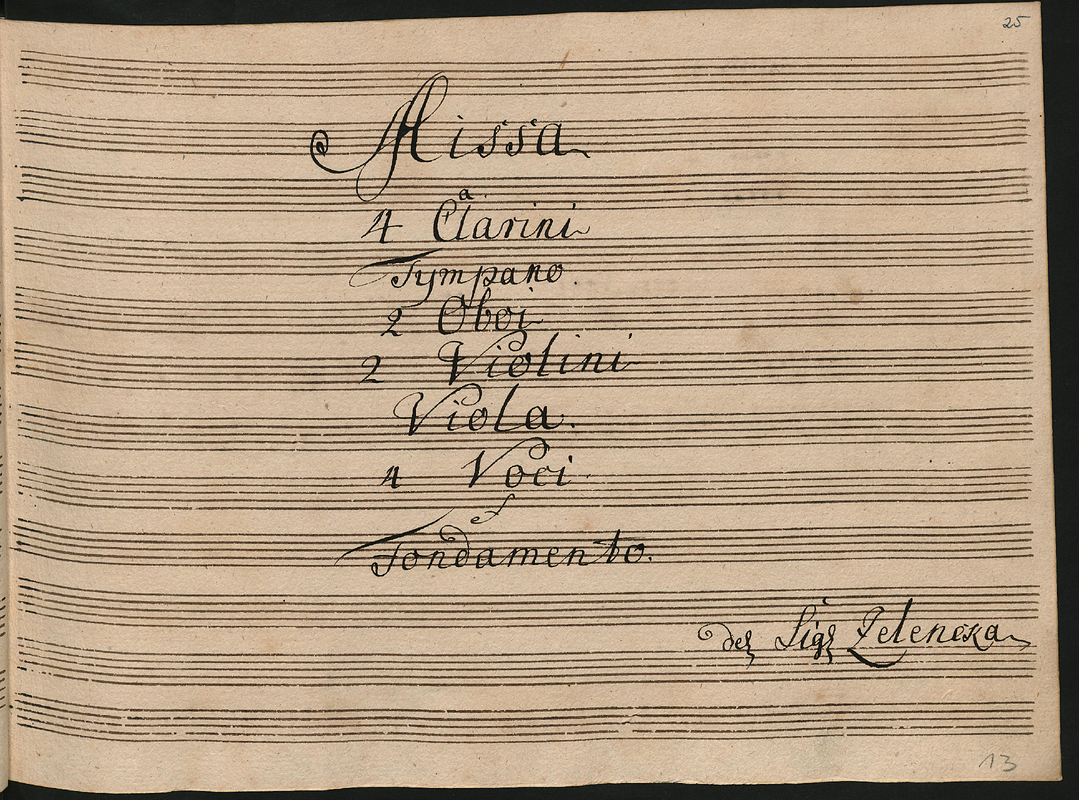 25
Missa
a
4 Clarini
Tympano.
2 Oboi
2 Violini
Viola.
4 Voci
et
Fondamento.
del Sigr Zelencka
13